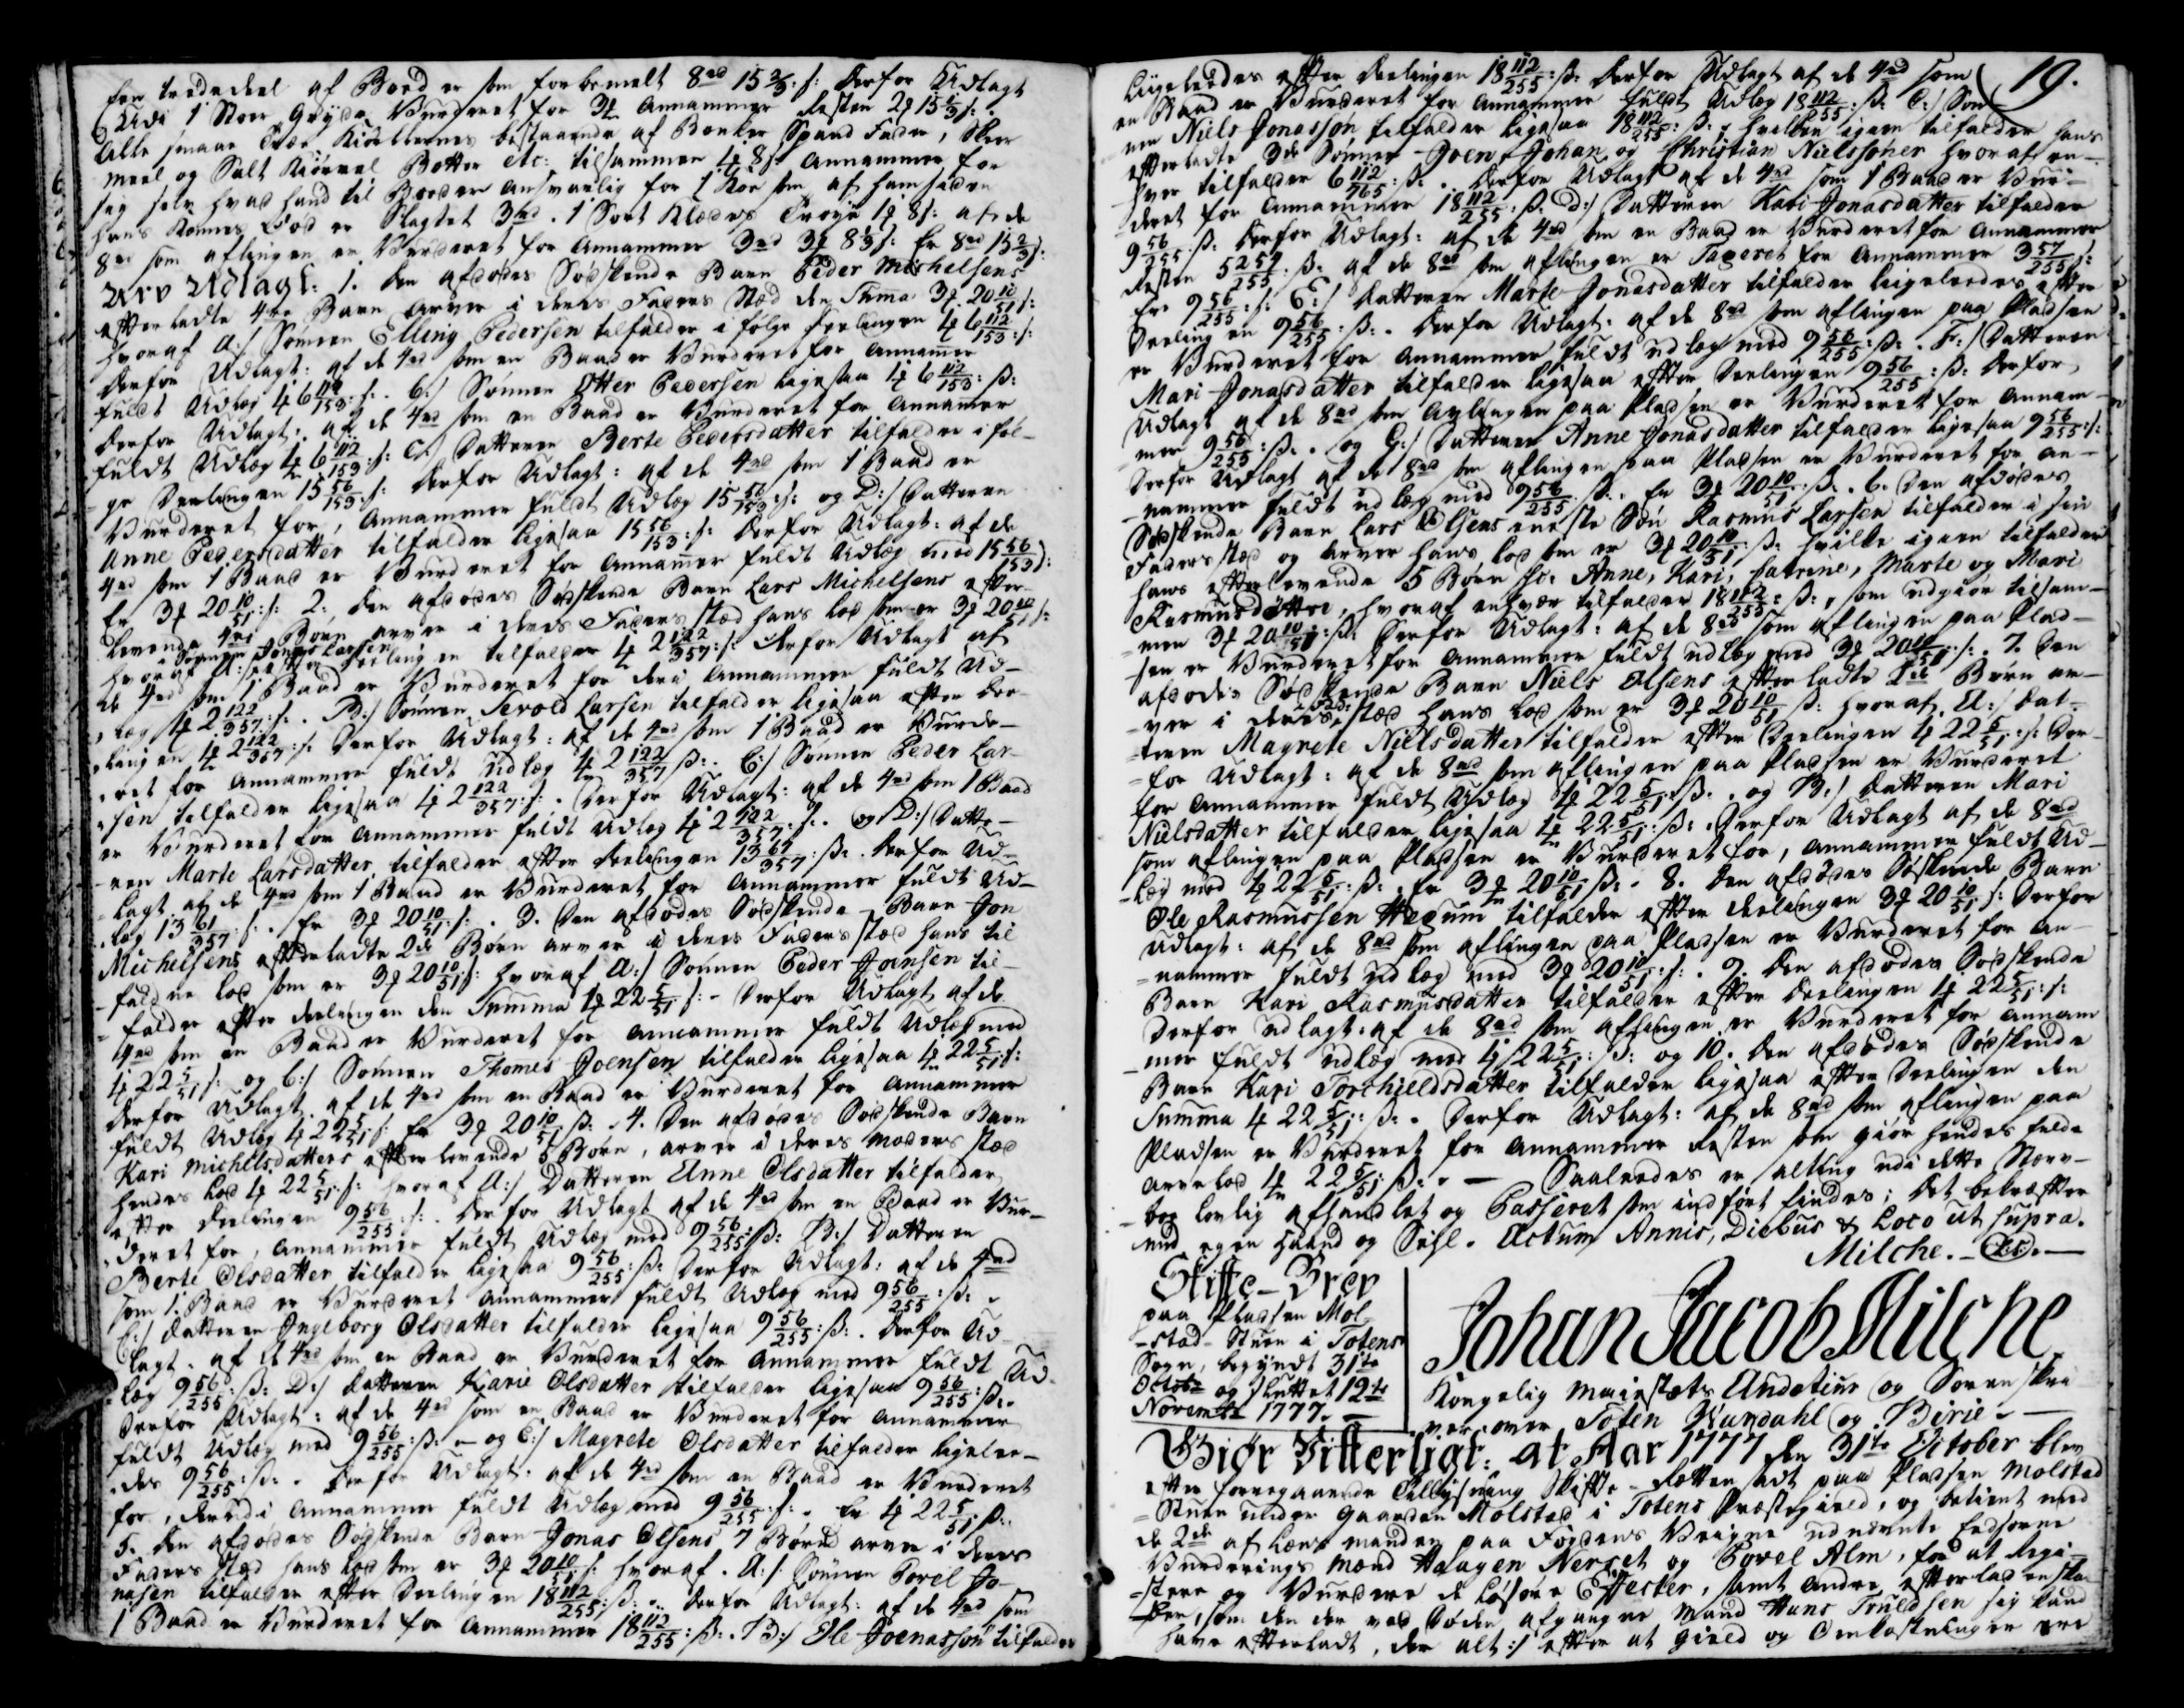 Een trededeel af Boed er som forbemelt 8rd 15 2/3 s: Derfor Udlagt
Udi 1 Stoer Gryde Vurderet for 3 ort Annammer Resten 2 ort 15 1/3 s:
Alle smaae Træe Kiørlerne bestaaende af Bønker Spand Fader, Skeer
meel og Salt Kiørrel Botter etc: tilsammen 4 ort 8 s: Annammer for
sig selv hvad hand til Boeden ansvarlig for 1 Koe som af ham siden
hans Kones Død er Slagtet 3rd. 1 Sort Klædes Trøye 1 ort 8 s: af de
8rd som aflingen er Vurderet for Annammer 3rd 3 ort 8 1/3 s: Er 8rd 15 2/3 s:
Arv Udlagt: 1. Den afdødes Sødskende Barn Peder Michelsens
efterladte 4re Børn arver i deres Faders Stæd den Suma 3 ort 20 10/51 s:
hvoraf A:/ Sønnen Elling Pedersen tilfalder i følge Deelingen 1 ort 6 112/153 s:
Derfor Udlagt: af de 4rd som en Baad er Vurderet for Annammer
fuldt Udlæg 1 ort 6 112/153 s: . B:/ Sønnen Otter Pedersen ligesaa 1 ort 6 112/153 : s:
Derfor Udlagt: af de 4rd som en Baad er Vurderet for Annammer
fuldt Udlæg 1 ort 6 112/153 : s: C:/ Datteren Berte Pedersdatter tilfalder i føl-
ge Deelingen 15 56/153 s: Derfor Udlagt: af de 4rd som 1 Baad er
Vurderet for, Annammer fuldt Udlæg 15 56/153 : s: og D:/ Datteren
Anne Pedersdatter tilfalder ligesaa 15 56/153 : s: Derfor Udlagt: af de
4rd som 1 Baad er Vurderet for Annammer fuldt Udlæg med 15 56/153 s:
Er 3 ort 20 10/51 : s: 2: Den afdødes Sødskende Barn Lars Michelsens efter-
levende 4re Børn arver i deres Faders stæd hans lod som er 3 ort 20 10/51 s:
hvoraf A: Sønnen Jonas Larsen efter Deelingen tilfalder 1 ort 2 122/357 : s: Derfor Udlagt af
de 4rd som 1 Baad er Vurderet for Annammer fuldt Ud-
læg 1 ort 2 122/357 : s: . B:/ Sønnen Tevold Larsen tilfalder ligesaa efter Dee-
lingen 1 ort 2 122/357 : s: Derfor Udlagt: af de 4rd som 1 Baad er Vurde-
ret for Annammer fuldt Udlæg 1 ort 2 122/357 s: . C:/ Sønnen Peder Lar-
sen tilfalder ligesaa 1 ort 2 122/357 : s: . Derfor Udlagt: af de 4rd som 1 Baad
er Vurderet for Annammer fuldt Udlæg 1 ort 2 122/357 : s: . og D:/ Datte-
ren Marte Larsdatter tilfalder efter Deelingen 13 61/357 : s: . Derfor Ud-
lagt af de 4rd som 1 Baad er Vurderet for Annammer fuldt Ud-
læg 13 61/357 : s: . Er 3 ort 20 10/51 : s: . 3. Den afdødes Sødskende Barn Jon
Michelsens efterladte 2de Børn arver i deres Faders stæd hans til
faldne lod som er 3 ort 20 10/51 s: hvoraf A:/ Sønnen Peder Joensen til-
falder efter Deelingen den Summa 1 ort 22 5/51 s: . Derfor Udlagt af de
4rd som en Baad er Vurderet for Annammer fuldt Udlæg med
1 ort 22 5/51 s: og B:/ Sønnen Thomes Joensen tilfalder ligesaa 1 ort 22 5/51 : s:
Derfor Udlagt af de 4rd som en Baad er Vurderet for Annammer
fuldt Udlæg 1 ort 22 5/51 s: Er 3 ort 20 10/51 s: . 4. Den afdødes Sødskende Barn
Kari Michelsdatters efterlevende 5 Børn, arver i deres Moders stæd
hendes lod 1 ort 22 5/51 : s: hvoraf A:/ Datteren Anne Olsdatter tilfalder
efter Deelingen 9 56/255 : s: . Derfor Udlagt af de 4rd som en Baad er Vur-
deret for, Annammer fuldt Udlæg med 9 56/255 s: B:/ Datteren
Berte Olsdatter tilfalder ligesaa 9 56/255 : s: Derfor Udlagt: af de 4rd
som 1. Baad er Vurderet Annammer fuldt Udlæg med 9 56/255 : s: .
C:/ Datteren Ingeborg Olsdatter tilfalder ligesaa 9 56/255 : s: . Derfor Ud-
lagt: af de 4rd som en Baad er Vurderet for Annammer fuldt Ud-
læg 9 56/255 : s: D:/ Datteren Karie Olsdatter tilfalder ligesaa 9 56/255 : s: .
Derfor Udlagt: af de 4rd som en Baad er Vurderet for Annammer
fuldt Udlæg med 9 56/255 : s: . og E:/ Magrete Olsdatter tilfalder ligelee-
des 9 56/255 : s: . Derfor Udlagt: af de 4rd som en Baad er Vurderet
for, derudi Annammer fuldt Udlæg med 9 56/255 : s: . Er 1 ort 22 5/51 s:
5. Den afdødes Sødskende Barn Jonas Olsens 7 Børn arver i deres
Faders Stæd hans lod som er 3 ort 20 10/51 : s: hvoraf . A:/: Sønnen Povel Jo-
nasen tilfalder efter Deelingen 18 112/255 : s: .. Derfor Udlagt: af de 4rd som
1 Baad er Vurderet for Annammer 18 112/255 : s: . B:/ Ole Joenassøn tilfalder
19.
Ligeleedes efter Deelingen 18 112/255 : s: Derfor Udlagt af de 4rd som
en Baad er Vurderet for Annammer fuldt Udlæg 18 112/255 : s: C:/ Søn
nen Niels Jonassøn tilfalder ligesaa 18 112/255 : s: , hvilken igien tilfalder hans
efterladte 3de Sønner Joen, Johan og Christian Nielssøner hvoraf en-
hver tilfalder 6 112/765 : s: . Derfor Udlagt af de 4rd som 1 Baad er Vur-
deret for Annammer 18 112/255 : s: D:/ Datteren Kari Jonasdatter tilfalder
9 56/255 s: Derfor Udlagt: af de 4rd som en Baad er Vurderet for Annammer
Resten 5 254/255 : s: af de 8rd som aflingen er Taxeret for Annammer 3 57/255 s:
Er 9 56/255 : s: E:/ Datteren Marte Jonasdatter tilfalder ligeleedes efter
Deelingen 9 56/255 : s: . Derfor Udlagt: af de 8rd som aflingen paa Pladsen
er Vurderet for Annammer fuldt Udlæg med 9 56/255 : s: . F:/ Datteren
Mari Jonasdatter tilfalder ligesaa efter Deelingen 9 56/255 : s: Derfor
Udlagt af de 8rd som Avlingen paa Pladsen er Vurderet for Annam-
mer 9 56/255 : s: . og G:/ Datteren Anne Jonasdatter tilfalder ligesaa 9 56/255 : s:
Derfor Udlagt af de 8rd som aflingen paa Pladsen er Vurderet for An-
nammer fuldt udlæg med 9 56/255 s: . Er 3 ort 20 10/51 : s: . 6. Den afdødes
Sødskende Barn Lars Olsens eneste Søn Rasmus Larsen tilfalder i sin
Faders stæd og arver hans lod som er 3 ort 20 10/51 : s: hvilke igien tilfalder
hans efterlevende 5 Børn hr: Anne, Kari, Catrine, Marte og Mari
Rasmusdøttre, hvoraf enhver tilfalder 18 112/255 : s: , som udgiør tilsam-
men 3 ort 20 10/51 : s: Derfor Udlagt: af de 8rd som aflingen paa Plad-
sen er Vurderet for Annammer fuldt udlæg med 3 ort 20 10/51 : s: . 7. Den
afdødes Sødskende Barn Niels Olsens efterladte 2de Børn ar-
ver i deres Fad: stæd hans lod som er 3 ort 20 10/51 s: hvoraf. A:/ Dat-
teren Magrete Nielsdatter tilfalder efter Deelingen 1 ort 22 5/51 : s: Der-
for Udlagt: af de 8rd som aflingen paa Pladsen er Vurderet
for Annammer fuldt Udlæg 1 ort 22 5/51 s: . og B:/ Datteren Mari
Nielsdatter tilfalder ligesaa 1 ort 22 5/51 : s: . Derfor Udlagt af de 8rd
som aflingen paa Pladsen er Vurderet for, Annammer fuldt Ud-
læg med 1 ort 22 5/51 : s: . Er 3 ort 20 10/51 s: . 8. Den afdødes Søskende Barn
Ole Rasmussen Hegum tilfalder efter Deelingen 3 ort 20 10/51 s: Derfor
Udlagt: af de 8rd som aflingen paa Pladsen er Vurderet for An-
nammer fuldt udlæg med 3 ort 20 10/51 : s: . 9. Den afdødes Sødskende
Barn Kari Rasmusdatter tilfalder efter Deelingen 1 ort 22 5/51 : s:
Derfor udlagt: af de 8rd som aflingen er Vurderet for Annam
mer fuldt udlæg med 1 ort 22 5/51 : s: og 10. Den afdødes Sødskende
Barn Kari Torchieldsdatter tilfalder ligesaa efter Deelingen den
Summa 1 ort 22 5/51 : s: . Derfor Udlagt: af de 8rd som aflingen paa
Pladsen er Vurderet for Annammer Resten som giør hendes fulde
arve lod 1 ort 22 5/51 s: . — Saaleedes er alting udi dette Sterv-
boe lovlig afhandlet og Passeret som indført findes; Det bekræfter
med egen Haand og Seigl. Actum Annis, Diebus & Loco ut supra.
Milche. - LS. —
Skifte-Brev
paa Pladsen Mol-
stad-Stuen i Totens
Sogn, begyndt 31te
Octobr og sluttet 12te
Novembr 1777. —
Johan Jacob Milche
Kongelig Maiestæts Auditeur og Sorenskri
ver over Toten Vardahl og Birie. —
Giør Vitterligt: at Aar 1777 den 31te October blev
efter foregaaende Tillysning Skifte-Retten sadt paa Pladsen Molstad
Stuen under Gaarden Molstad i Totens Præstegield, og betient med
de 2de af Lensmanden paa Fogdens Vegne udnævnte Eedsorne
Vurderings Mænd Haagen Nerset og Povel Alm, for at Regi-
strere og Vurdere de Løsøre Effecter, samt andre efterladenska-
ber, som den der ved Døden afgangne Mand Hans Truedsen sig kand
have efterladt, der alt:/ efter at gield og Omkostninger ere